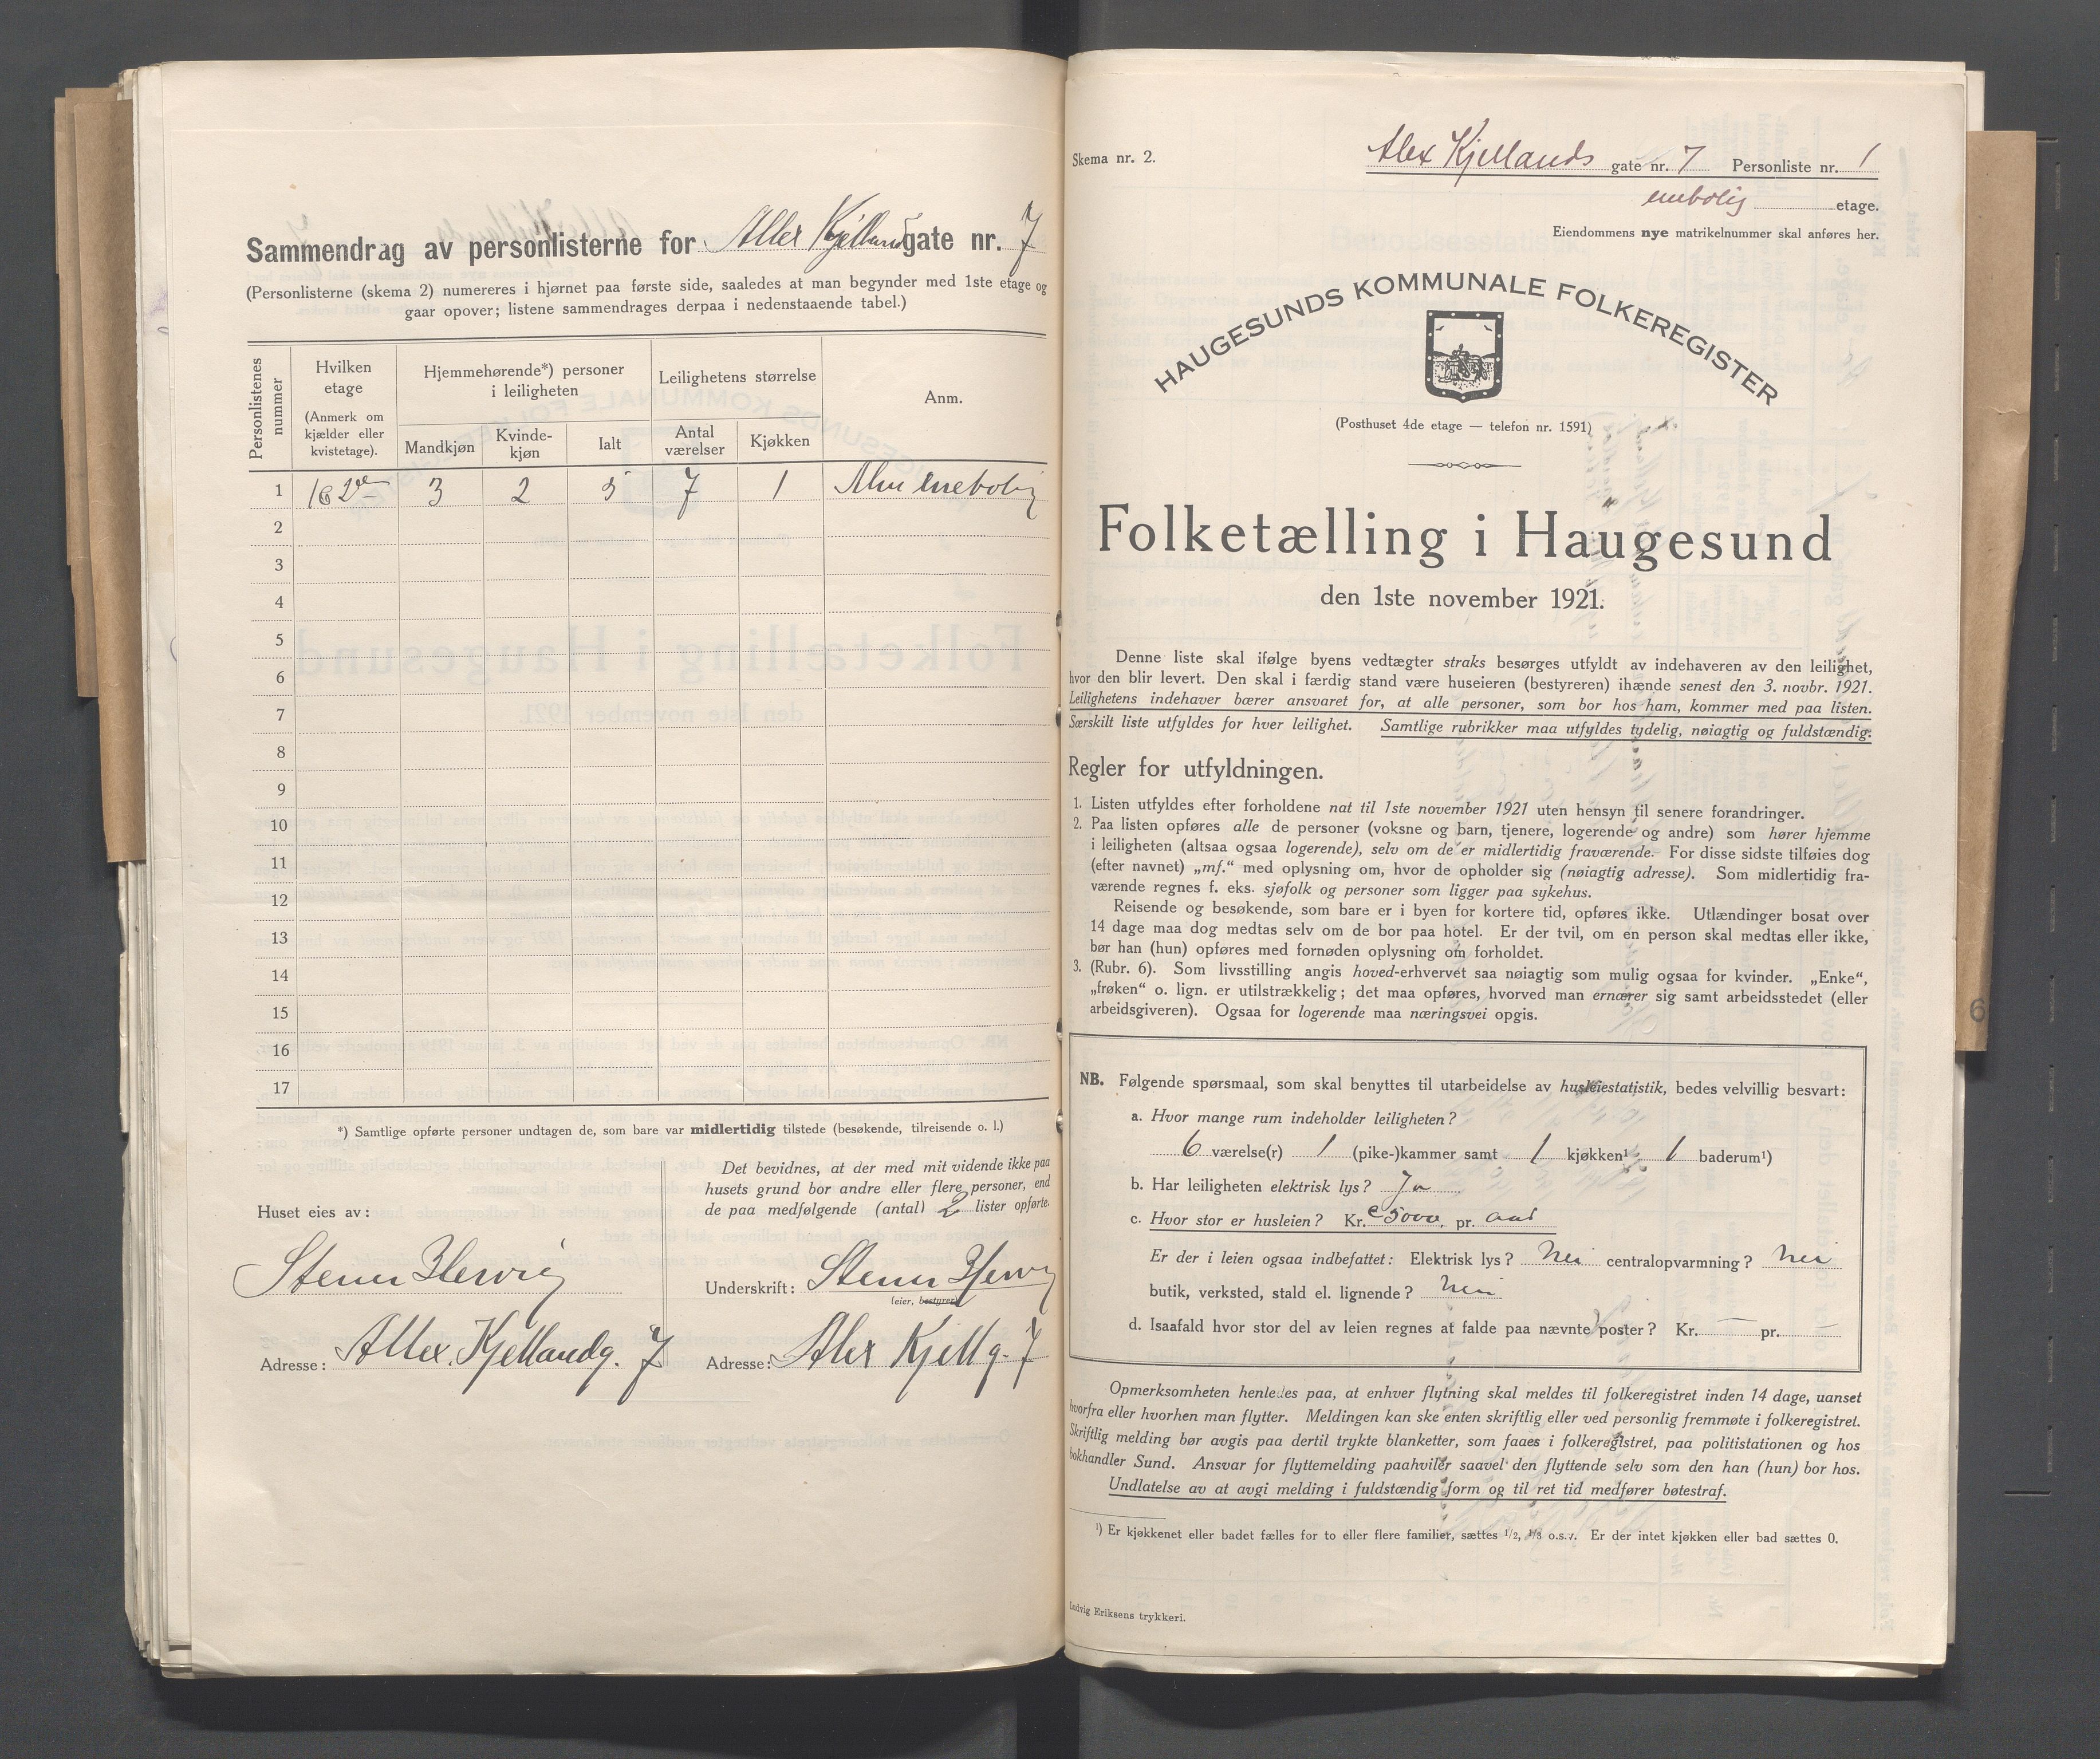 Sammendrag av personlisterne for Allex Kjelland gate nr. 7
(Personlisterne (skema 2) numereres i hjørnet paa første side, saaledes at man begynder med 1ste etage og
gaar opover; listene sammendrages derpaa i nedenstaaende tabel.)
Personlistenes nummer
Hvilken etage (Anmerk om kjælder eller kvistetage).
Hjemmehørende*) personer i leiligheten
Leilighetens størrelse
Anm.
Mandkjøn Kvinde-kjøn Ialt Antal værelser Kjøkken
1 3 2 5 7 1 enebolig
2
3
4
5
6
7
8
9
10
11
12
13
14
15
16
17
*) Samtlige opførte personer undtagen de, som bare var midlertidig tilstede (besøkende, tilreisende o. l.)
Det bevidnes, at der med mit vidende ikke paa
husets grund bor andre eller flere personer, end
de paa medfølgende (antal) 2 lister opførte.
Huset eies av:
Underskrift:
(eier, bestyrer)
Adresse: Allex. Kjellandg. 7
Adresse: Alex Kjellg. 7
Skema nr. 2.
Alex Kjellands gate nr. 7 Personliste nr. 1
enebolig etage.
Eiendommens nye matrikelnummer skal anføres her.
HAUGESUNDS KOMMUNALE FOLKEREGISTER
(Posthuset 4de etage — telefon nr. 1591)
Folketælling i Haugesund
den 1ste november 1921.
Denne liste skal ifølge byens vedtægter straks besørges utfyldt av indehaveren av den leilighet,
hvor den blir levert. Den skal i færdig stand være huseieren (bestyreren) ihænde senest den 3. novbr. 1921.
Leilighetens indehaver bærer ansvaret for, at alle personer, som bor hos ham, kommer med paa listen.
Særskilt liste utfyldes for hver leilighet. Samtlige rubrikker maa utfyldes tydelig, nøiagtig og fuldstændig.
Regler for utfyldningen.
1. Listen utfyldes efter forholdene nat til 1ste november 1921 uten hensyn til senere forandringer.
2. Paa listen opføres alle de personer (voksne og barn, tjenere, logerende og andre) som hører hjemme
i leiligheten (altsaa ogsaa logerende), selv om de er midlertidig fraværende. For disse sidste tilføies dog
(efter navnet) „mf.“ med oplysning om, hvor de opholder sig (nøiagtig adresse). Som midlertidig fra-
værende regnes f. eks. sjøfolk og personer som ligger paa sykehus.
Reisende og besøkende, som bare er i byen for kortere tid, opføres ikke. Utlændinger bosat over
14 dage maa dog medtas selv om de bor paa hotel. Er der tvil, om en person skal medtas eller ikke,
bør han (hun) opføres med fornøden oplysning om forholdet.
3. (Rubr. 6). Som livsstilling angis hoved-erhvervet saa nøiagtig som mulig ogsaa for kvinder. „Enke“,
„frøken“ o. lign. er utilstrækkelig; det maa opføres, hvorved man ernærer sig samt arbeidsstedet (eller
arbeidsgiveren). Ogsaa for logerende maa næringsvei opgis.
NB. Følgende spørsmaal, som skal benyttes til utarbeidelse av husleiestatistik, bedes velvillig besvart:
a. Hvor mange rum indeholder leiligheten?
6 værelse(r) 1 (pike-)kammer samt 1 kjøkken¹ 1 baderum¹)
b. Har leiligheten elektrisk lys? Ja
c. Hvor stor er husleien? Kr. 5000, pr. aar
Er der i leien ogsaa indbefattet: Elektrisk lys? Nei centralopvarmning? Nei
butik, verksted, stald el. lignende? Nei
d. Isaafald hvor stor del av leien regnes at falde paa nævnte poster? Kr. — pr. —
Opmerksomheten henledes paa, at enhver flytning skal meldes til folkeregistret inden 14 dage, uanset
hvorfra eller hvorhen man flytter. Meldingen kan ske enten skriftlig eller ved personlig fremmøte i folkeregistret.
Skriftlig melding bør avgis paa dertil trykte blanketter, som faaes i folkeregistret, paa politistationen og hos
bokhandler Sund. Ansvar for flyttemelding paahviler saavel den flyttende selv som den han (hun) bor hos.
Undlatelse av at avgi melding i fuldstændig form og til ret tid medfører bøtestraf.
¹) Er kjøkkenet eller badet fælles for to eller flere familier, sættes 1/2, 1/3 o.s.v. Er der intet kjøkken eller bad sættes 0.
Ludvig Eriksens trykkeri.
6